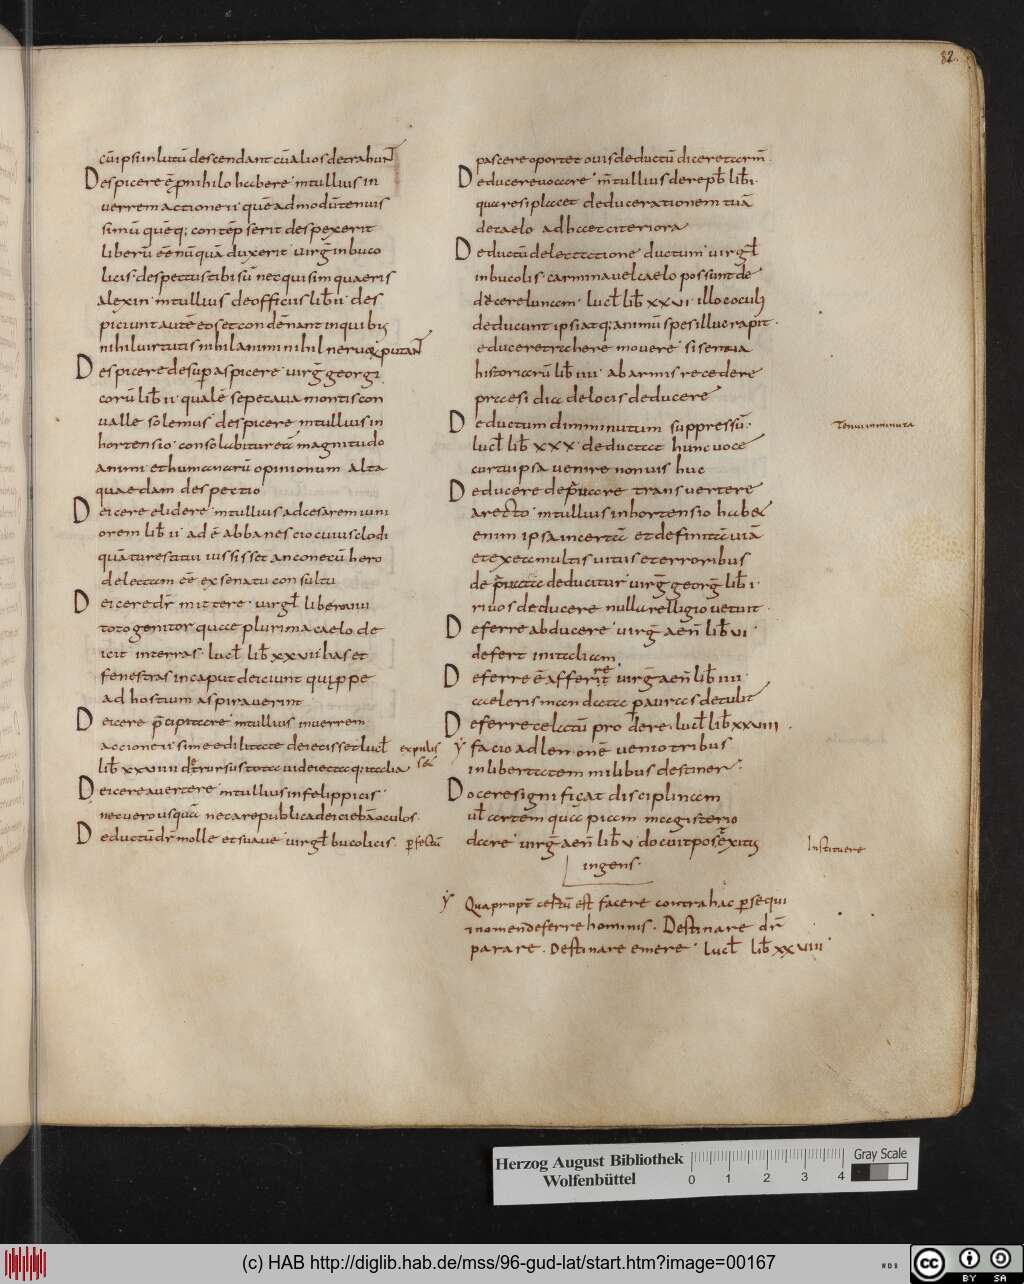 82.
cū ipsi in lutū descendant cū alios detrahunt
Despicere ē p nihilo habere · m tullius in
verrem actione ii quē ad modū tenuis
simū quēq; contēpserit despexerit
liberū eē nūquā duxerit virg̅ in buco
licis · despectus tibi sū nec qui sim quaeris
alexin · m tullius de officiis lib̅ ii · des
piciunt autē eos et condēnant in quib;
nihil virtutis nihil animi nihil nervorū putant
Despicere desup aspicere · virg̅ georgi
corū lib̅ ii · qualē sepe cava montis con
valle solemus despicere m tullius in
hortensio · consolabitur etā magnitudo
animi et humanarū opinionum alta
quaedam despectio
Deicere elidere · m tullius ad cesarem iuni
orem lib̅ ii · ad ē abba nescio cuius clodi
quā turrestitui iussisset anconetū hero
delectam eē ex senatu consultu
Deicere dr̅ mittere · virgl̅ liber viii
toto genitor quae plurima caelo de
icit in terras · lucl̅ lib̅ xxvii has et
fenestras in caput deiciunt qui ppe
ad hostium aspiraverint
Deicere p̅cipitare · m tullius in verrem
accione ii sime edilitate deiecisset lucl̅
expulis
lib̅ xxviiii rursus tota vi deiectaq; italia
Deicere avertere · m tullius in felippicis ·
nec vero usquā nec a republica deiciebā oculos ·
Deductū dr̅ molle et suave · virgl̅ bucolicis · pfectū
pascere oportet ovis deductū dicere carm̅ ·
Deducere vocare · m̅ tullius de rep̅b lib̅ i ·
quare si placet deduc orationem tuā
de caelo ad haec citeriora
Deductū delectatione ductum · virgl̅
in bucolis · carmina vel caelo possunt de
ducere lunam · lucl̅ lib̅ xxvi · illo oculi
deducunt ipsi atq; animū spes illuc rapit ·
educere trahere movere · sisenna
historiarū lib̅ iiii · ab armis recedere
praesidia de locis deducere
Deductum dimminutum suppressū ·
Tenui imminuta
lucl̅ lib̅ xxx · deductat hunc voce
cur tu ipsa venire non vis huc
Deducere depravare transvertere
a recto · m tullius in hortensio habet
enim ipsa incerta et definita viā
et exea multis vitiis et erroribus
depravata deducitur virg̅ georg̅ lib̅ i ·
rivos deducere nulla religio vetuit ·
Deferre abducere · virg̅ aen̅ lib̅ vi ·
defert in italiam
Deferre ē afferre · virg̅ aen̅ lib̅ iiii ·
celeris mandata p auras detulit
Deferre delatū prodere · lucl̅ lib̅ xxviiii ·
facio ad len onē venio tribus
in libertatem milibus destiner ·
Docere significat disciplinam
ul̅ artem quāpiam magisterio
dare · virg̅ aen̅ lib̅ v docuit post exitus
Instituere
ingens ·
Quapropt̅ certū est facere contra hac psequi
i nomen deferre hominis · Destinare dr̅
parare · Destinare emere · lucl̅ lib̅ xxviiii
Herzog August Bibliothek
Wolfenbüttel
0 1 2 3 4
Gray Scale
(c) HAB http://diglib.hab.de/mss/96-gud-lat/start.htm?image=00167
WDB
cc BY SA